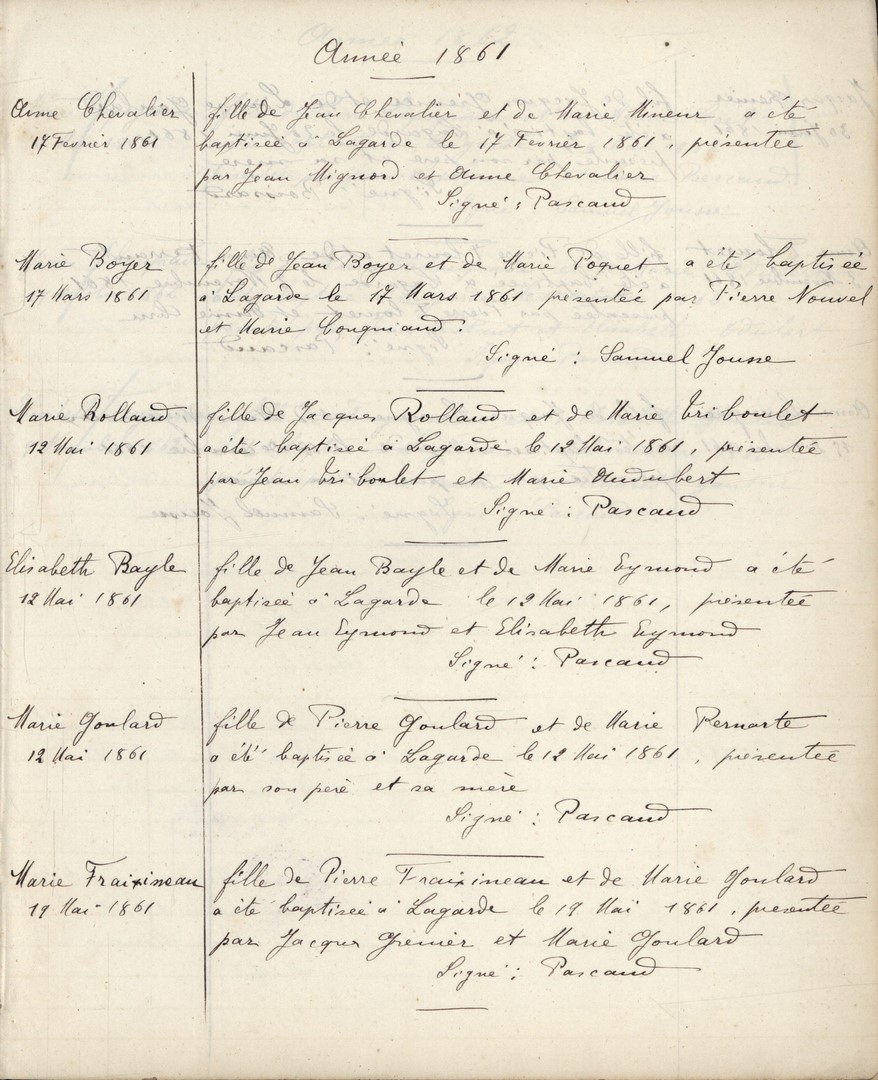 Année 1861
Anne Chevalier
17 Fevrier 1861
fille de Jean Chevalier et de Marie Mineur a été
baptisée à Lagarde le 17 Fevrier 1861, présentée
par Jean Mignord et Anne Chevalier
Signé : Pascaud
Marie Boyer
17 Mars 1861
fille de Jean Boyer et de Marie Poquet a été baptisée
à Lagarde le 17 Mars 1861 présentée par Pierre Nouvel
et Marie
Signé : Samuel Jousse
Marie Rolland
12 Mai 1861
fille de Jacques Rolland et de Marie Triboulet
a été baptisée à Lagarde le 12 Mai 1861, présentée
par Jean Triboulet et Marie Audubert
Signé : Pascaud
Elisabeth Bayle
12 Mai 1861
fille de Jean Bayle et de Marie Eymond a été
baptisée à Lagarde le 12 Mai 1861, présentée
par Jean Eymond et Elisabeth Eymond
Signé : Pascaud
Marie Goulard
12 Mai 1861
fille de Pierre Goulard et de Marie Pernarte
a été baptisée à Lagarde le 12 Mai 1861, présentée
par son père et sa mère
Signé : Pascaud
Marie Fraixineau
19 Mai 1861
fille de Pierre Fraixineau et de Marie Goulard
a été baptisée à Lagarde le 19 Mai 1861, présentée
par Jacques Grenier et Marie Goulard
Signé : Pascaud